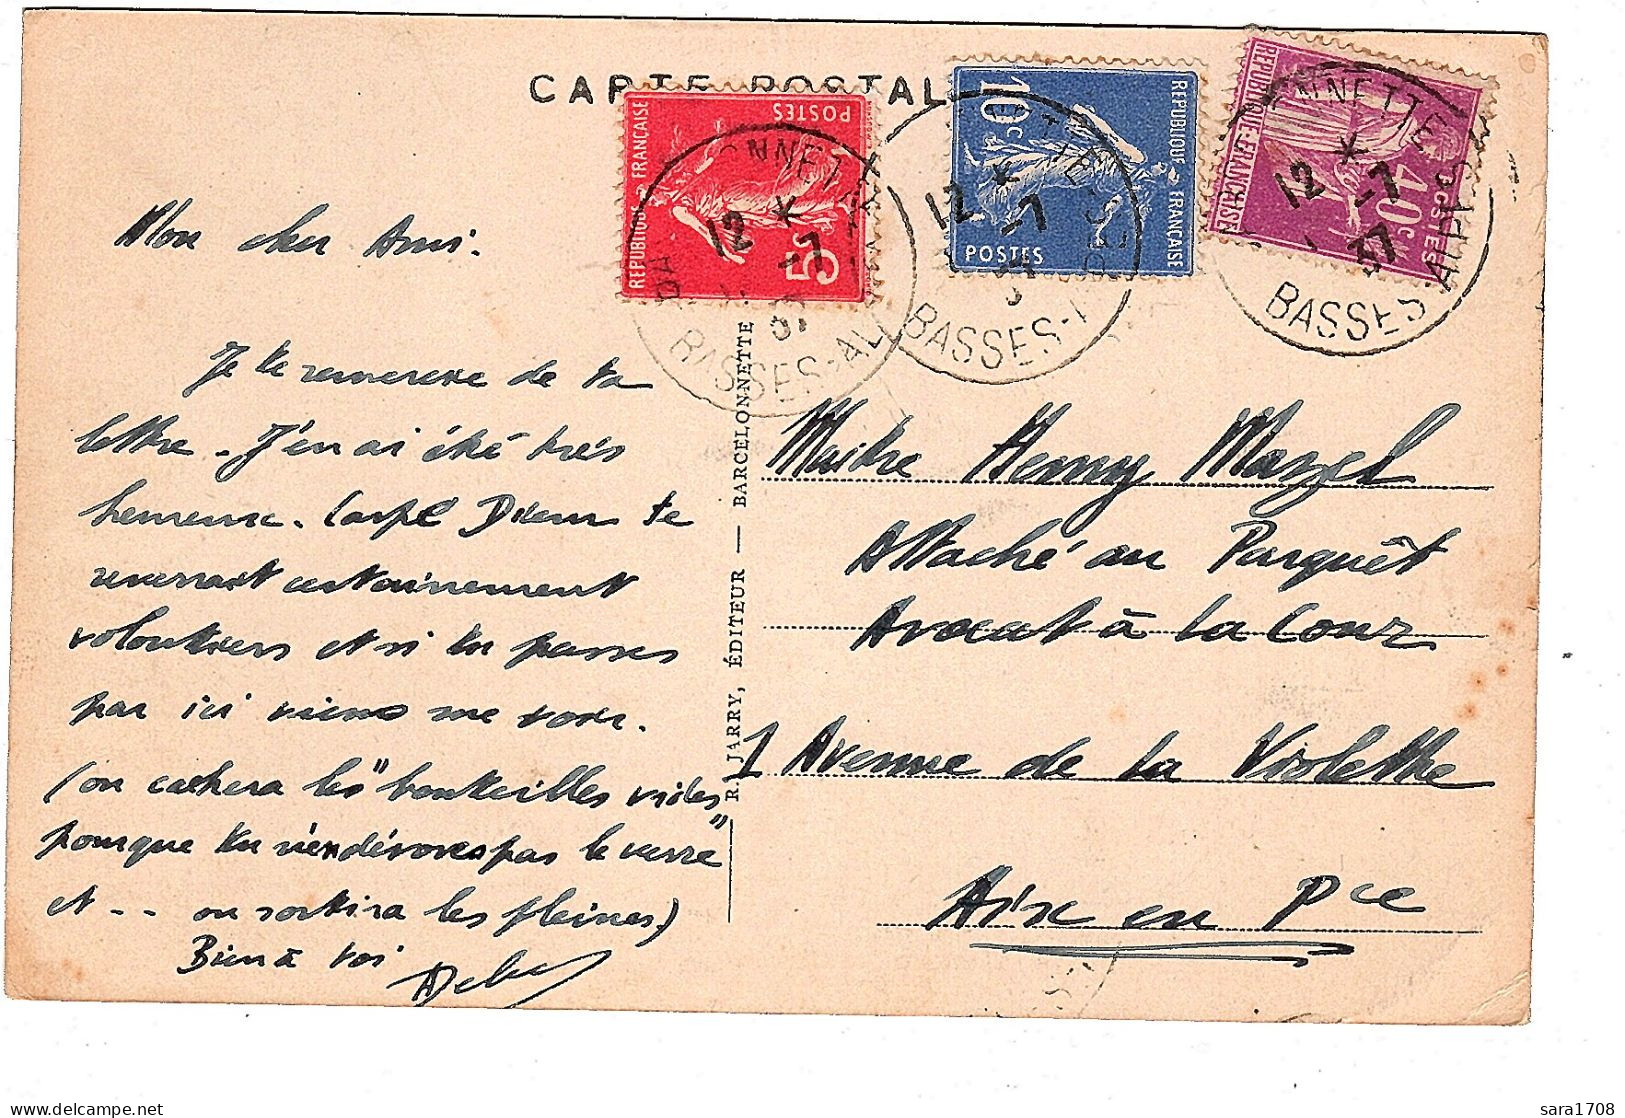 CARTE POSTALE
REPUBLIQUE FRANÇAISE
POSTES
5c
10c
REPUBLIQUE FRANÇAISE
POSTES
REPUBLIQUE FRANÇAISE
40c
POSTES
12 * -7 37
BASSES-AL
12 * -7
BASSES-
12 * -7 37
BASSES ALPES
Mon cher Ami.
Je te remercie de ta
lettre. J'en ai été très
heureux. te
reverrait certainement
volontiers et si tu passes
par ici viens me voir.
(on cachera les "bouteilles vides
pourque tu n'en dévores pas le verre"
et -- on sortira les pleines)
Bien à toi
R. JARRY, ÉDITEUR — BARCELONNETTE
Maitre Henry Mazel
Attaché au Parquêt
Avocat à la Cour
1 Avenue de la Violette
Aix en Pce
sara1708